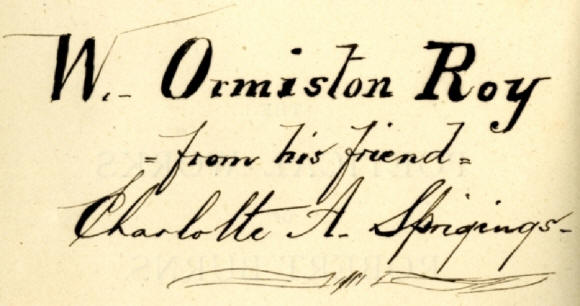 W. Ormiston Roy
= from his friend =
Charlotte A. Sprigings -